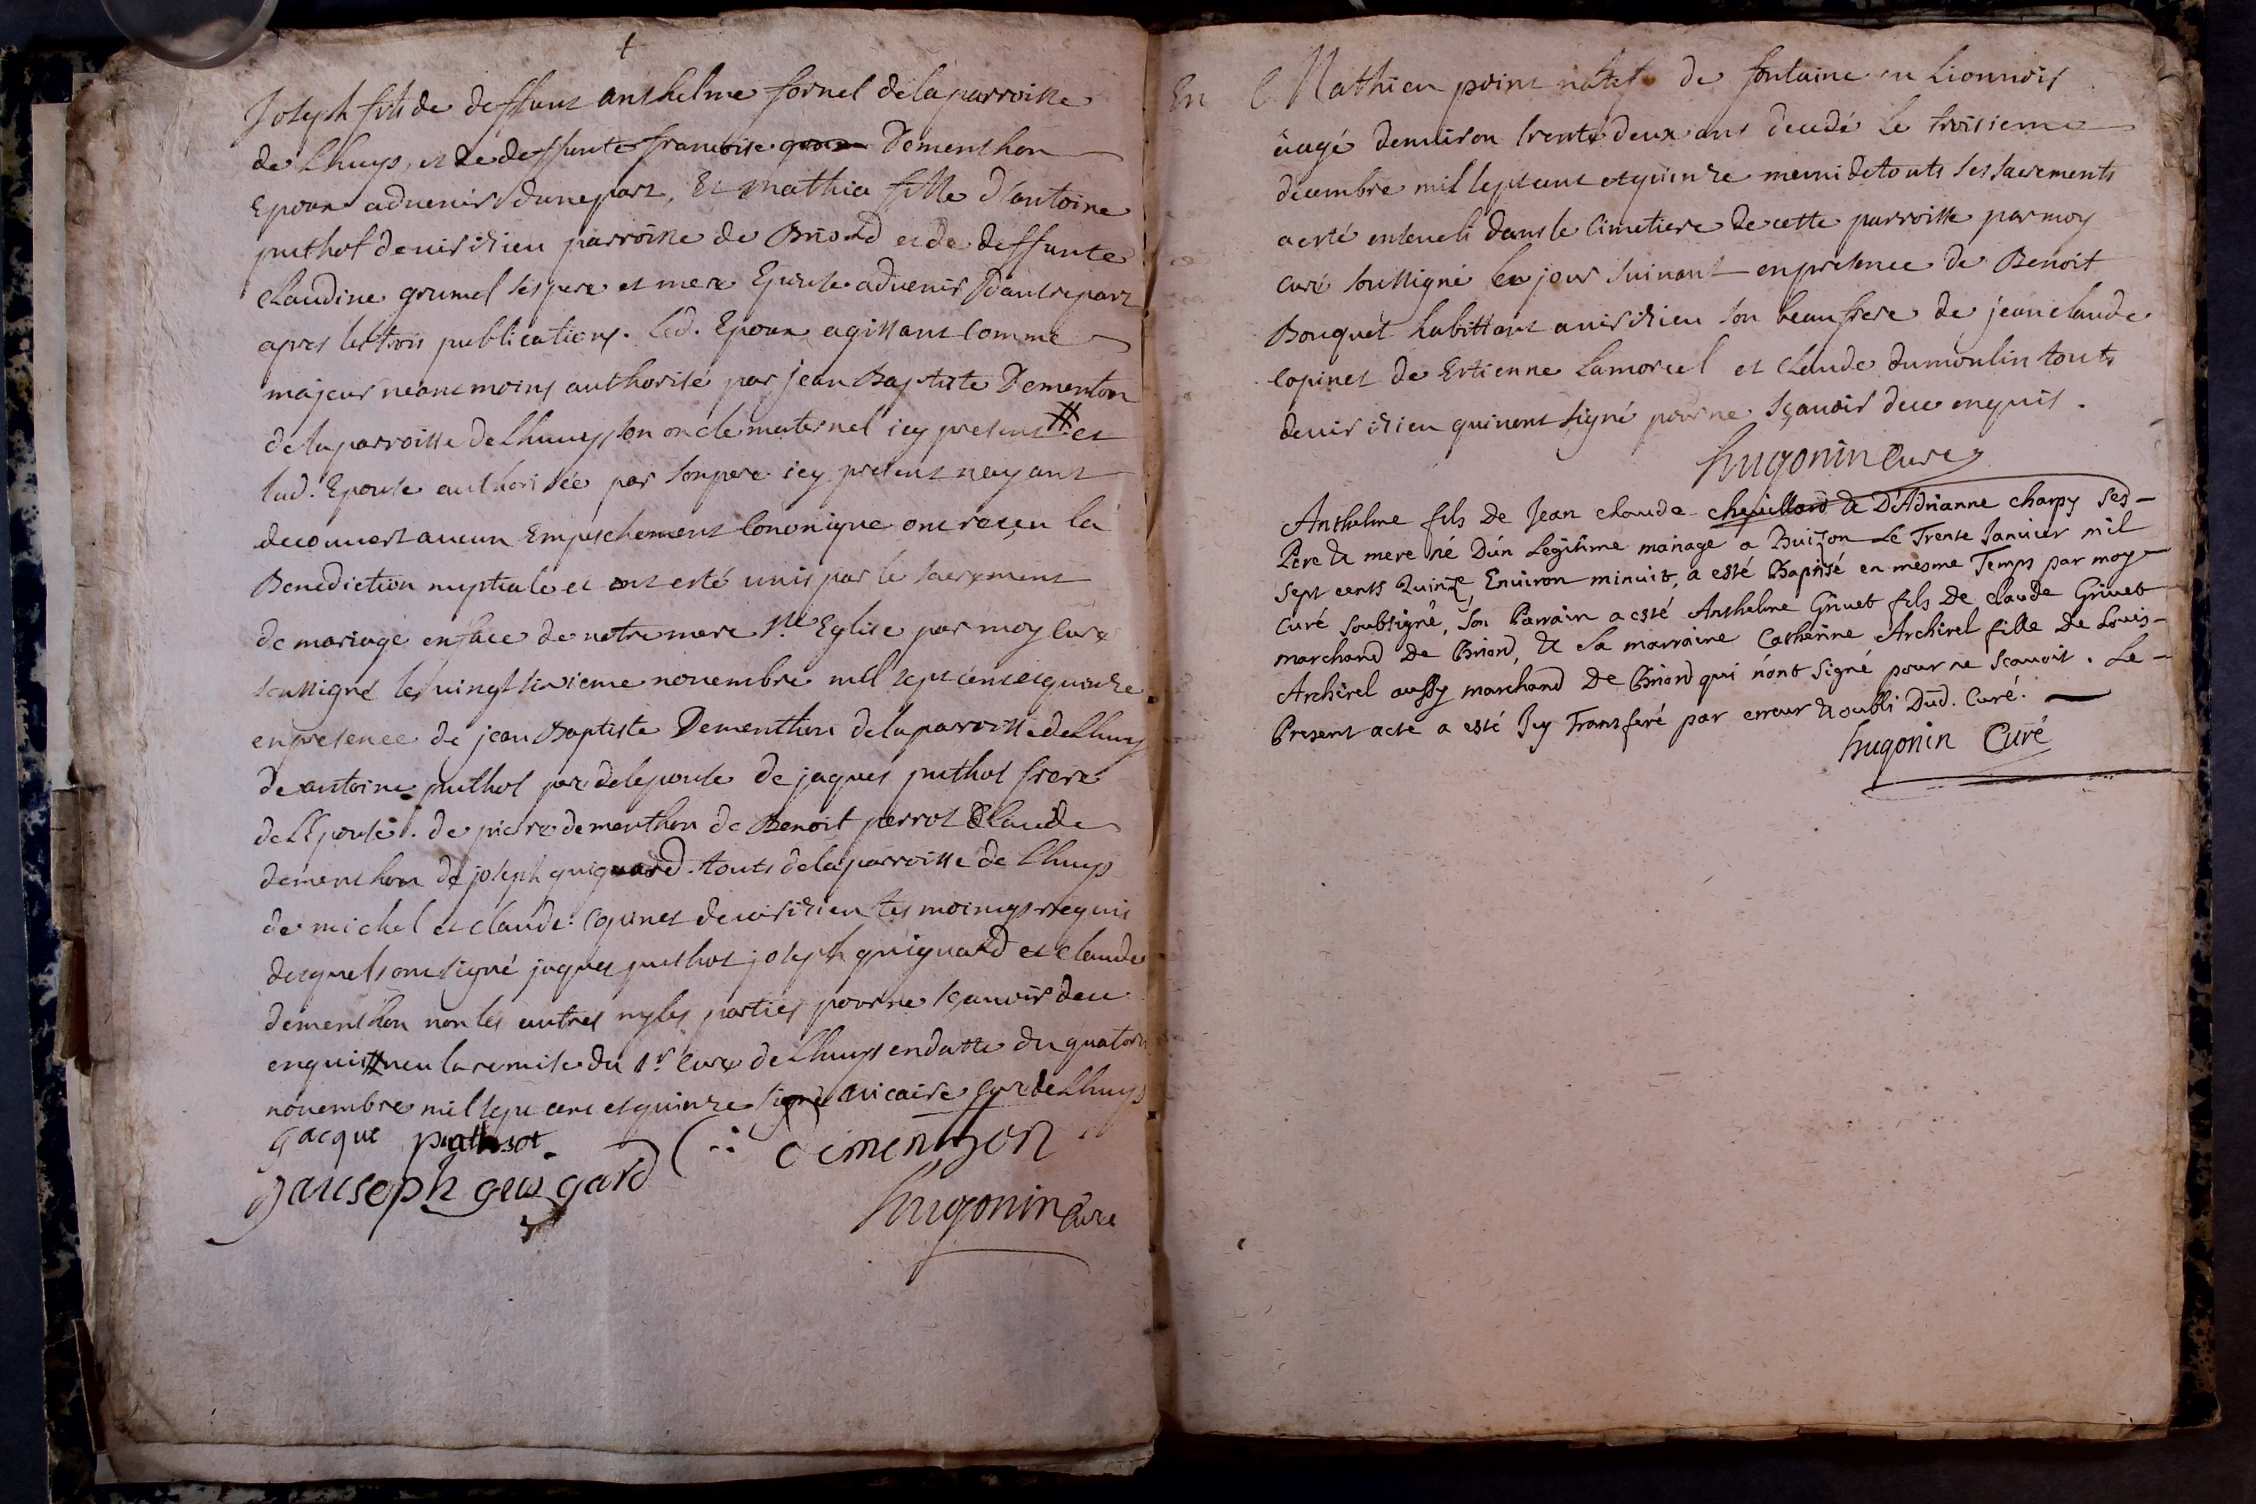 Joseph fils de deffunt anthelme fornel delaparroisse
de Lhuys, et de deffunte francoise Dementhon
Epoux advenir dunepart, Et mathia fille d'antoine
puthot devirizieu parroisse de Briord et de deffunte
Claudine grumel ses pere et mere Epouse advenir d'autrepart
apres les trois publications. Led. Epoux agissant comme
majeur neantmoins authorisé par jean Baptiste Dementon
de la parroisse de Lhuys son oncle maternel icy present # et
lad. Epouse authorisée par son pere icy present nayant
decouvert aucun Empeschement Cononique ont reçeu la
Benediction nuptiale et ont esté unis par le sacrement
de mariage enface de notre mere Ste Eglise par moy Curé
soussigné le vingt sixieme novembre mil sept cent et quinze
en presence de jean Baptiste Dementhon delaparroisse deLhuys
de antoine puthot pere delepouse de jaques puthot frere
deLEpouse. de pierre dementhon de Benoit perrot Claude
dementhon de joseph guignard. touts delaparroisse de Lhuys
de michel et claude Copinet de virizieu tesmoings requis
desquels ont signé jaques puthot joseph guignard et claude
dementhon non les autres ny les parties pour ne sçavoir deu
enquis # veu la remise du Sr Curé de Lhuys en datte du quatorze
novembre mil sept cent et quinze signé vicaire Curé de Lhuys
Jacque puthot
Jauseph guigard dementhon
hugonin Curé
Mathieu point natif de fontaine en Lionnois
âagé denviron trente deux ans decedé le troisieme
decembre mil sept cent et quinze muni de touts ses sacrements
a esté enseveli dans le Cimetiere de cette parroisse par moy
curé soussigné le jour suivant en presence de Benoit
Bouquet habittant a virizieu son beaufrere de jean claude
Copinet de Estienne Lamorcel et Claude dumoulin touts
devirizieu qui nont signé pour ne sçavoir deu enquis.
hugonin Curé
Anthelme fils De Jean claude chevillard & D'Adrianne charpy ses-
Pere & mere né D'un Legitime mariage a Buizon Le Trente Janvier mil
Sept cents Quinze, Environ minuit, a esté Baptisé en mesme Temps par moy
Curé soubsigné, Son Parrain a esté Anthelme Grivet fils De claude Grivet
marchand De Briord, & Sa marraine Catherine Archirel fille De Louis-
Archirel aussy marchand De Briord qui n'ont signé pour ne scavoir. Le-
Present acte a esté Icy Transferé par erreur & oubli Dud. Curé.
hugonin Curé